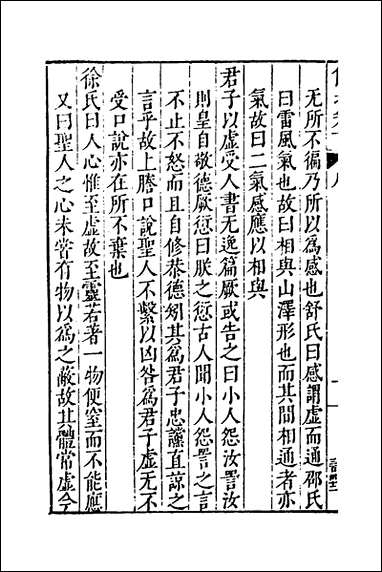 無所不徧乃所以為感也舒氏曰感謂虛而通邵氏
曰雷風氣也故曰相與山澤形也而其間相通者亦
氣故曰二氣感應以相與
君子以虛受人書無逸篇厥或告之曰小人怨汝詈汝
則皇自敬德厥愆曰朕之愆古人聞小人怨詈之言
不止不怒而且自修恭德矧其為君子忠讜直諒之
言乎故上謄口說聖人不繫以凶咎為君子虛无不
受口說亦在所不棄也
徐氏曰人心惟至虛故至靈若著一物便窒而不能應
又曰聖人之心未嘗有物以為之蔽故其體常虛今